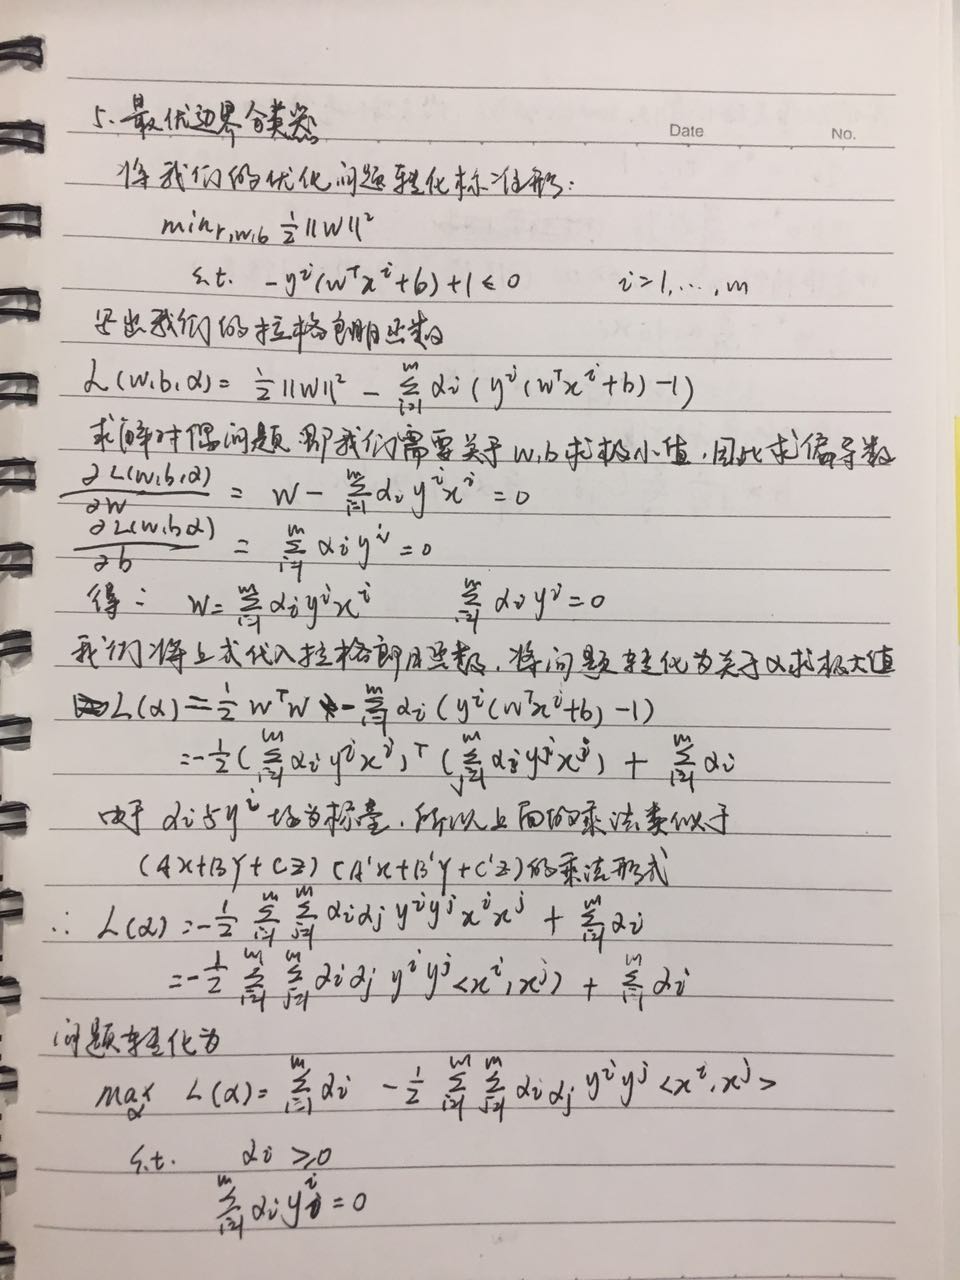 Date No.
5. 最优边界分类器
将我们的优化问题转化标准形:
min r,w,b ½||W||²
s.t. -yⁱ(wᵀxⁱ+b)+1≤0 i=1,…,m
写出我们的拉格朗日函数
L(w,b,α)= ½||W||² - Σᵢ₌₁ᵐ αᵢ(yⁱ(wᵀxⁱ+b)-1)
求解对偶问题,即我们需要关于w,b求极小值,因此求偏导数
∂L(w,b,α)/∂w = W - Σᵢ₌₁ᵐ αᵢyⁱxⁱ=0
∂L(w,b,α)/∂b = Σᵢ₌₁ᵐ αᵢyⁱ=0
得: W=Σᵢ₌₁ᵐ αᵢyⁱxⁱ Σᵢ₌₁ᵐ αᵢyⁱ=0
我们将上式代入拉格朗日函数,将问题转化为关于α求极大值
L(α)=½WᵀW - Σᵢ₌₁ᵐ αᵢ(yⁱ(wᵀxⁱ+b)-1)
=-½(Σᵢ₌₁ᵐ αᵢyⁱxⁱ)ᵀ(Σⱼ₌₁ᵐ αⱼyʲxʲ) + Σᵢ₌₁ᵐ αᵢ
由于αᵢ与yⁱ均为标量,所以上面的乘法类似于
(AX+BY+CZ)(A'X+B'Y+C'Z)的乘法形式
∴ L(α)=-½ Σᵢ₌₁ᵐ Σⱼ₌₁ᵐ αᵢαⱼyⁱyʲxⁱxʲ + Σᵢ₌₁ᵐ αᵢ
=-½ Σᵢ₌₁ᵐ Σⱼ₌₁ᵐ αᵢαⱼyⁱyʲ<xⁱ,xʲ> + Σᵢ₌₁ᵐ αᵢ
问题转化为
max α L(α)= Σᵢ₌₁ᵐ αᵢ -½ Σᵢ₌₁ᵐ Σⱼ₌₁ᵐ αᵢαⱼyⁱyʲ<xⁱ,xʲ>
s.t. αᵢ≥0
Σᵢ₌₁ᵐ αᵢyⁱ=0